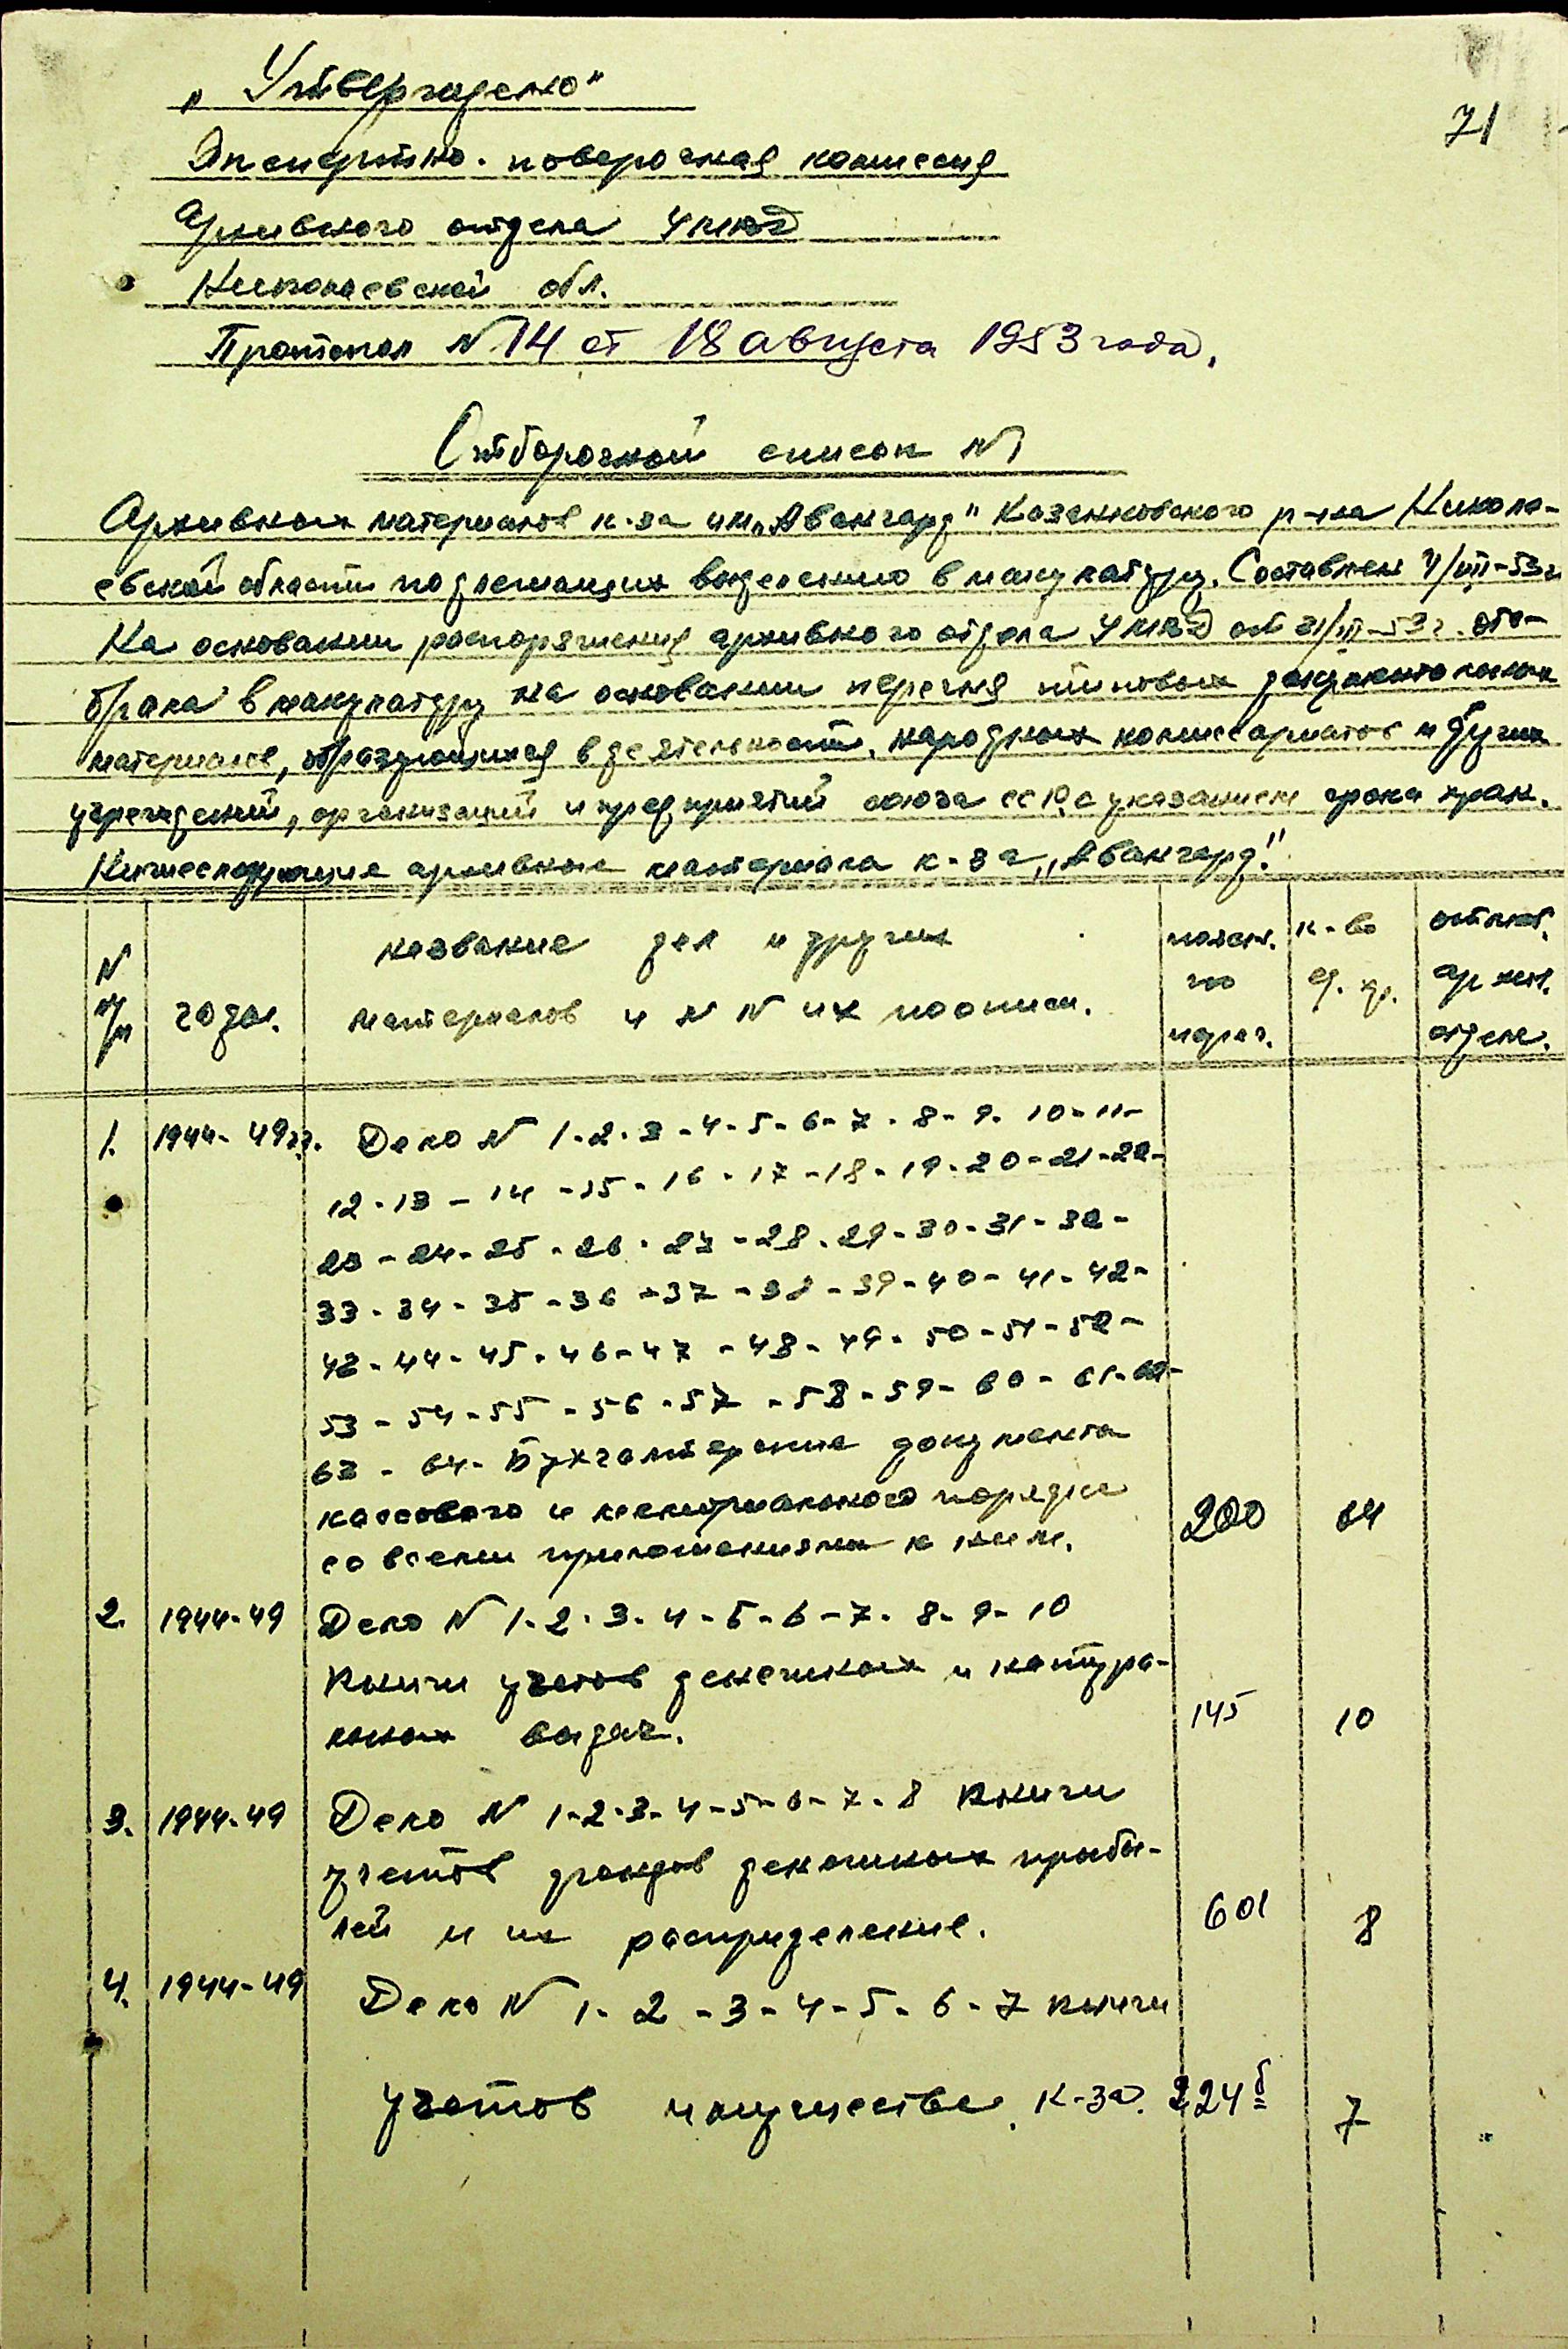 „Утверждено"
71
Экспертно-поверочная комиссия
Архивного отдела УМВД
Николаевской обл.
Протокол N 14 от 18 августа 1953 года.
Отборочный список N1
Архивных материалов к-за им. „Авангард" Казанковского р-на Никола-
евской области подлежащих выделению в макулатуру. Составлен /VIII-53г
На основании распоряжения архивного отдела УМВД от 31/ -53г. ото-
брана в макулатуру на основании перечня типовых документальных
материалов, образующихся в деятельности народных комиссариатов и других
учреждений, организаций и предприятий союза ССР, с указанием срока хран.
Нижеследующие архивные материала к-за „Авангард".
N п/п
годы.
название дел и других
материалов и N N их поописи.
N по переч.
к-во ед. хр.
отмет. архив. отдела.
1. 1944-49гг. Дело N 1-2-3-4-5-6-7-8-9-10-11-
12-13-14-15-16-17-18-19-20-21-22-
23-24-25-26-27-28-29-30-31-32-
33-34-35-36-37-38-39-40-41-42-
43-44-45-46-47-48-49-50-51-52-
53-54-55-56-57-58-59-60-61-62-
63-64- Бухгалтерские документа
кассового и мемориального порядка
со всеми приложениями к ним. 200 64
2. 1944-49 Дело N 1-2-3-4-5-6-7-8-9-10
Книги учетов денежных и натура-
льных выдач. 145 10
3. 1944-49 Дело N 1-2-3-4-5-6-7-8 Книги
учетов фондов денежных прибы-
лей и их распределение. 601 8
4. 1944-49 Дело N 1-2-3-4-5-6-7 книги
учетов имущества к-за. 224б 7